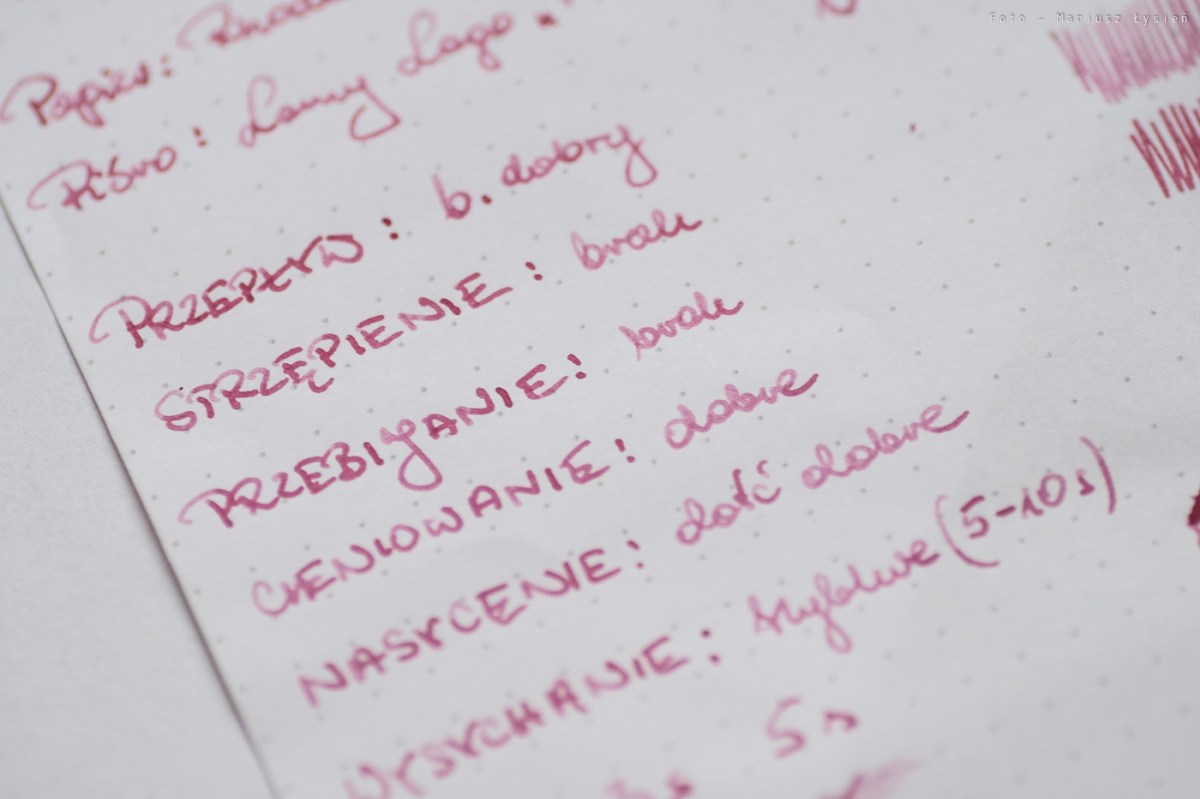 Foto - Mariusz Łysień
Papier:
Pióro: Lamy Logo
PRZEPŁYW: b. dobry
STRZĘPIENIE: brak
PRZEBIJANIE: brak
CIENIOWANIE: dobre
NASYCENIE: dość dobre
WYSYCHANIE: szybkie (5-10s)
5s